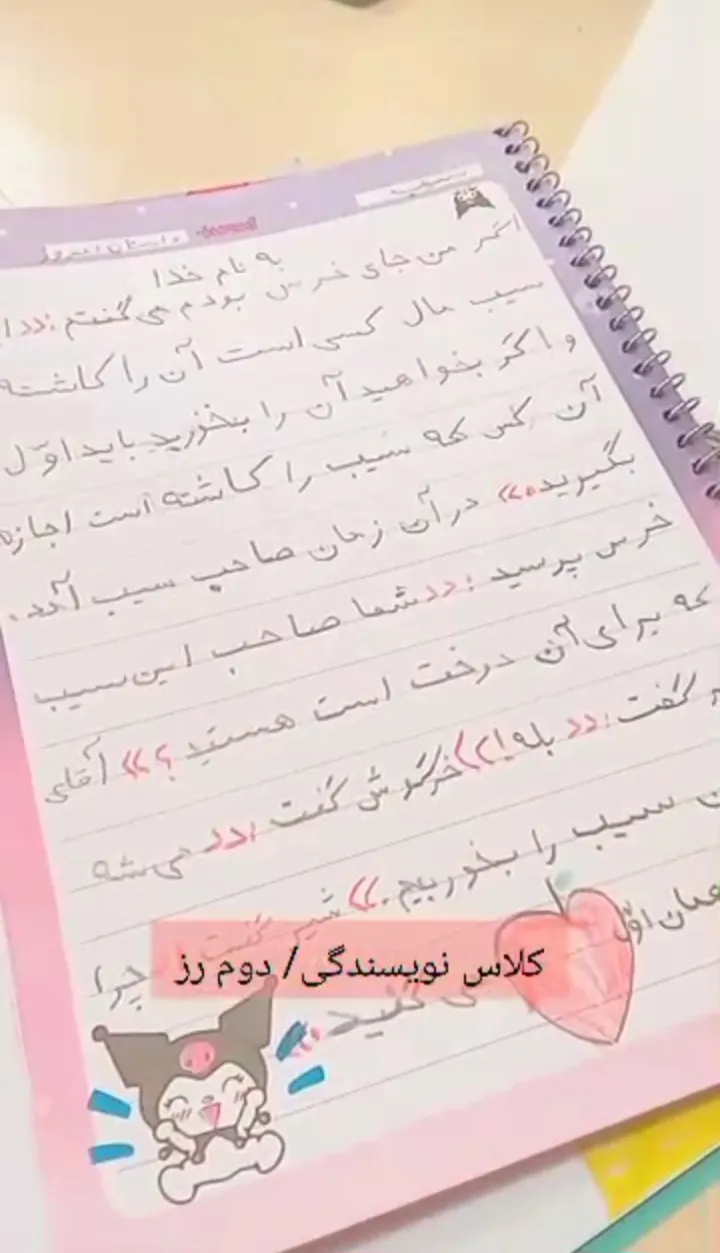 به نام خدا
اگر من جای خرس بودم می‌گفتم:««
سیب مال کسی است آن را کاشته
و اگر بخواهید آن را بخورید باید اوّل
آن کس که سیب را کاشته است اجازه
بگیرید.»» در آن زمان صاحب سیب آمد.
خرس پرسید:««شما صاحب این سیب
که برای آن درخت است هستید؟»» آقای
گفت:««بله!»»خرگوش گفت:««می‌شه
سیب را بخوریم.»» شیر گفت چرا
همان اوّل
کنید
کلاس نویسندگی/ دوم رز